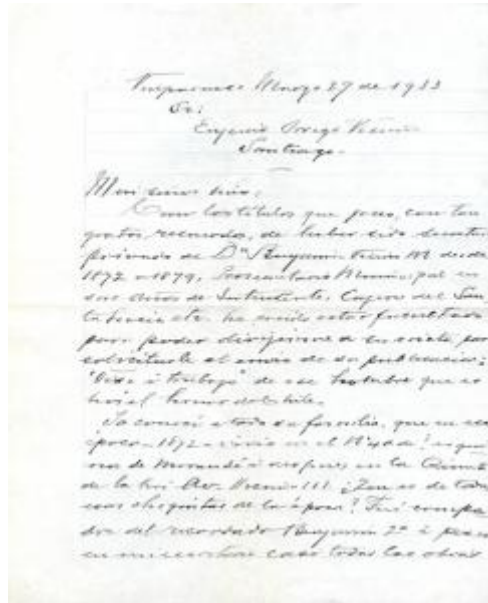 Valparaiso Mayo 27 de 1933
Sr:
Eugenio Orrego Vicuña
Santiago.
Mui señor mío:
Con los títulos que poseo, con tan
gratos recuerdos, de haber sido secretario
privado de Dn Benjamin Vicuña M. desde
1872 a 1879, Prosecretario Municipal en
sus años de Intendente, Cajero del San
ta Lucia etc. he creido estar facultado
para poder dirijirme a Ud.
solicitarle el envio de su publicacion:
"Vida i trabajos" de ese hombre que es
hoi el de Chile.
Yo conocí a toda su familia, que en esa
época - 1872 - vivia en el esqui
na de Morandé i despues en la Quinta
de la hoi Av. Vicuña M. ¿Que es de todas
esas chiquitas de la época? Fuí compa
dre del recordado Benjamin 2º i
en mi casa todas las obras